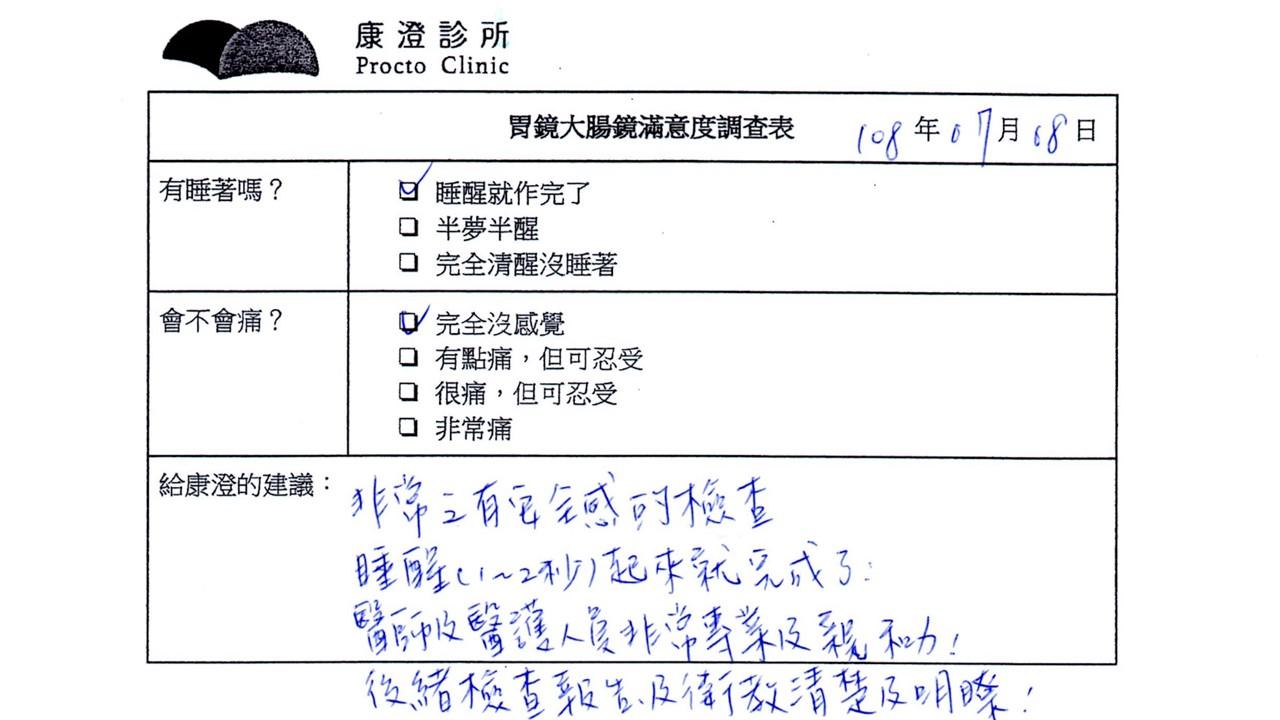 康澄診所
Procto Clinic
胃鏡大腸鏡滿意度調查表 108年07月08日
有睡著嗎？
睡醒就作完了
半夢半醒
完全清醒沒睡著
會不會痛？
完全沒感覺
有點痛，但可忍受
很痛，但可忍受
非常痛
給康澄的建議：
非常之有安全感的檢查
睡醒(1~2秒)起來就完成了!
醫師及醫護人員非常專業及親和力!
後緒檢查報告及衛教清楚及明瞭!